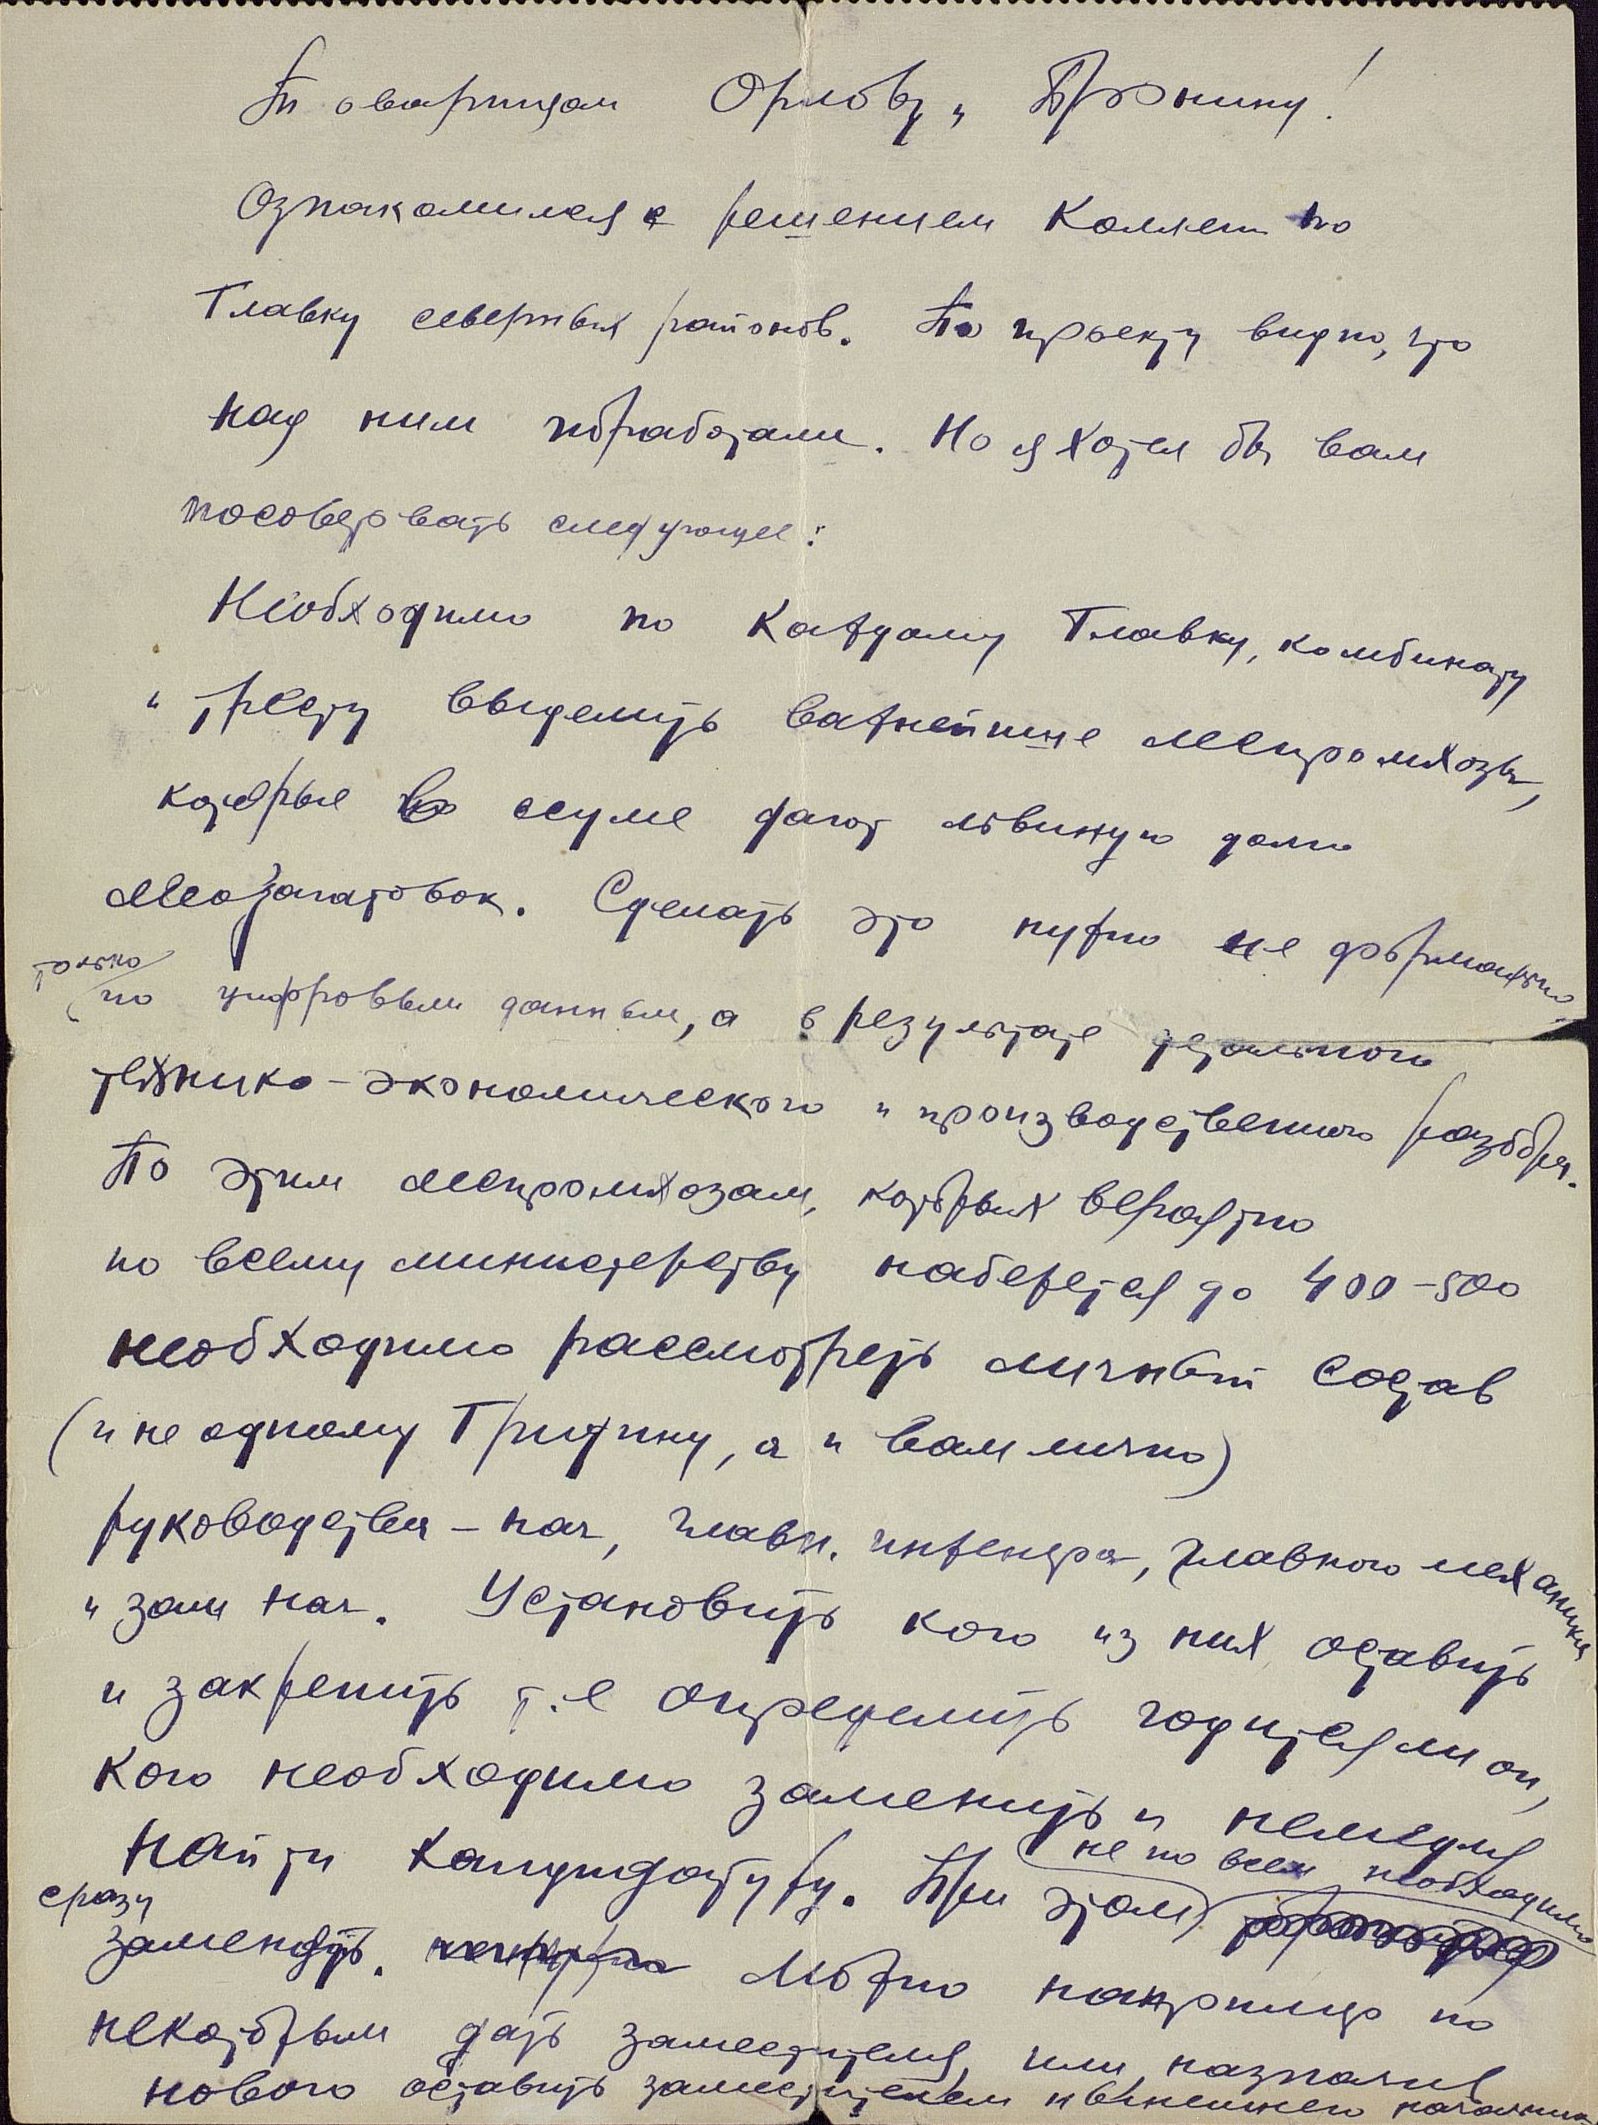 Товарищам Орлову и Пронину!
Ознакомился с решением Коллег. по
Главку северных районов. По проекту видно, что
над ним поработали. Но я хотел бы вам
посоветовать следующее:
Необходимо по каждому Главку, комбинату
и тресту выделить важнейшие леспромхозы,
которые в ссуме дают львиную долю
лесозаготовок. Сделать это нужно не формально
только
по цифровым данным, а в результате детального
технико-экономического и производственного разбора.
По этим леспромхозам, которых вероятно
по всему министерству наберется до 400-500
необходимо рассмотреть личный состав
(и не одному Грида, а и вам лично)
руководства - нач, главн. инженера, главного механика
и зам нач. Установить кого из них оставить
и закрепить т.е определить годится ли он,
кого необходимо заменить и немедля
не по всем необходимо
найти кандидатуру. При этом
сразу
заменять. Можно например по
некоторым дать заместителя, или назначив
нового оставить заместителем нынешнего начальника